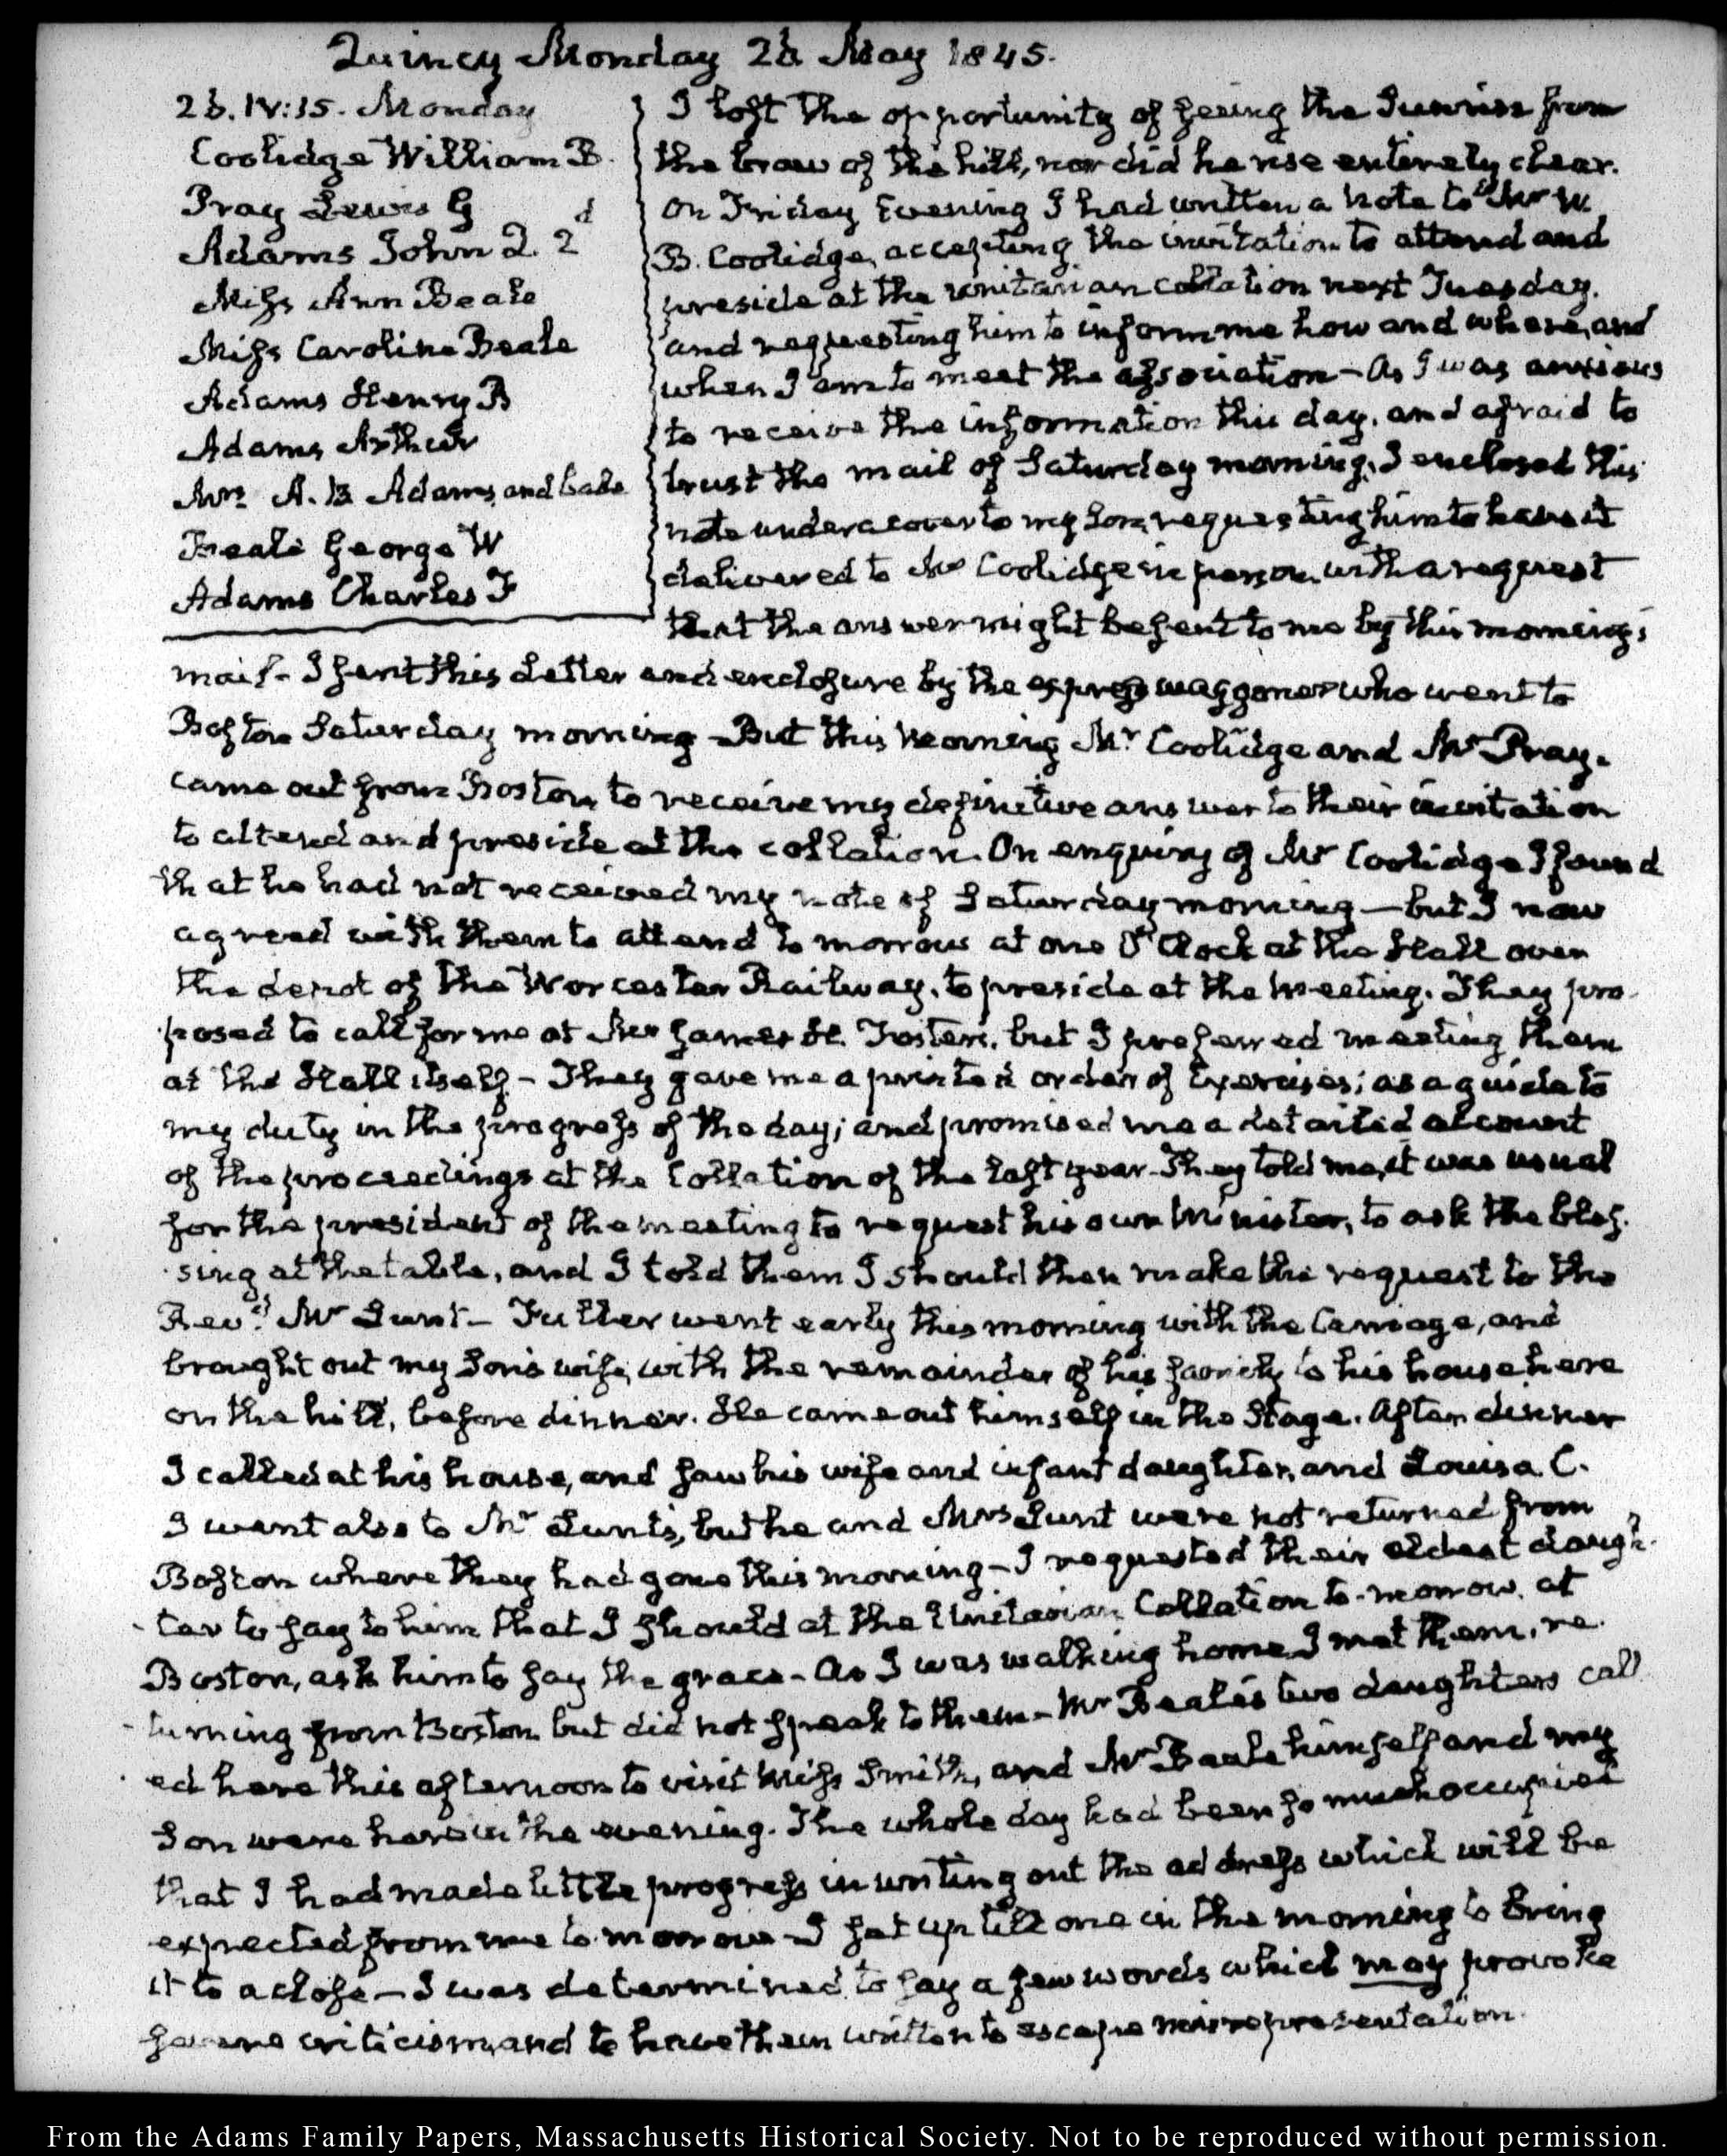 Quincy Monday 26 May 1845.
26. IV:15. Monday
Coolidge William B.
Pray Lewis G
Adams John Q. 2d
Miss Ann Beale
Miss Caroline Beale
Adams Henry B
Adams Arthur
Mrs A. B Adams and babe
Beale George W
Adams Charles F
I lost the opportunity of seeing the Sunrise from
the brow of the hill, nor did he rise entirely clear.
On Friday Evening I had written a note to Mr W
B. Coolidge, accepting the invitation to attend and
preside at the Unitarian collation next Tuesday.
and requesting him to inform me how and where, and
when I am to meet the association – As I was anxious
to receive the information this day, and afraid to
trust the mail of Saturday morning, I enclosed this
note under a cover to my Son, requesting him to have it
delivered to Mr Coolidge in person, with a request
that the answer might be sent to me by this morning's
mail – I sent this Letter and enclosure by the express waggoner who went to
Boston Saturday morning – But this Morning Mr Coolidge and Mr Pray.
came out from Boston, to receive my definitive answer to their invitation
to attend and preside at the collation. On enquiry of Mr Coolidge I found
that he had not received my note of Saturday morning – but I now
agreed with them to attend to morrow at one O'Clock at the Hall over
the depot of the Worcester Railway, to preside at the Meeting. They pro-
posed to call for me at Mr James H. Foster's, but I preferred meeting them
at the Hall itself – They gave me a printed order of Exercises; as a guide to
my duty in the progress of the day; and promised me a detailed account
of the proceedings at the Collation of the last year. They told me, it was usual
for the president of the meeting to request his own Minister, to ask the bles-
sing at the table, and I told them I should then make the request to the
Revd. Mr Lunt – Fuller went early this morning with the Carriage, and
brought out my Son's wife, with the remainder of his family to his house here
on the hill, before dinner. He came out himself in the Stage. After dinner
I called at his house, and saw his wife and infant daughter, and Louisa. C.
I went also to Mr Lunt's, but he and Mrs Lunt were not returned from
Boston where they had gone this morning – I requested their eldest daugh-
ter to say to him that I should at the Unitarian Collation to-morrow, at
Boston, ask him to say the grace – As I was walking home I met them, re-
turning from Boston but did not speak to them – Mr Beale's two daughters call
ed here this afternoon to visit Miss Smith, and Mr Beale himself and my
Son were here in the evening. The whole day had been so much occupied
that I had made little progress in writing out the address which will be
expected from me to-morrow – I sat up till one in the morning to bring
it to a close – I was determined to say a few words which may provoke
severe criticism, and to have them written to escape misrepresentation.
From the Adams Family Papers, Massachusetts Historical Society. Not to be reproduced without permission.